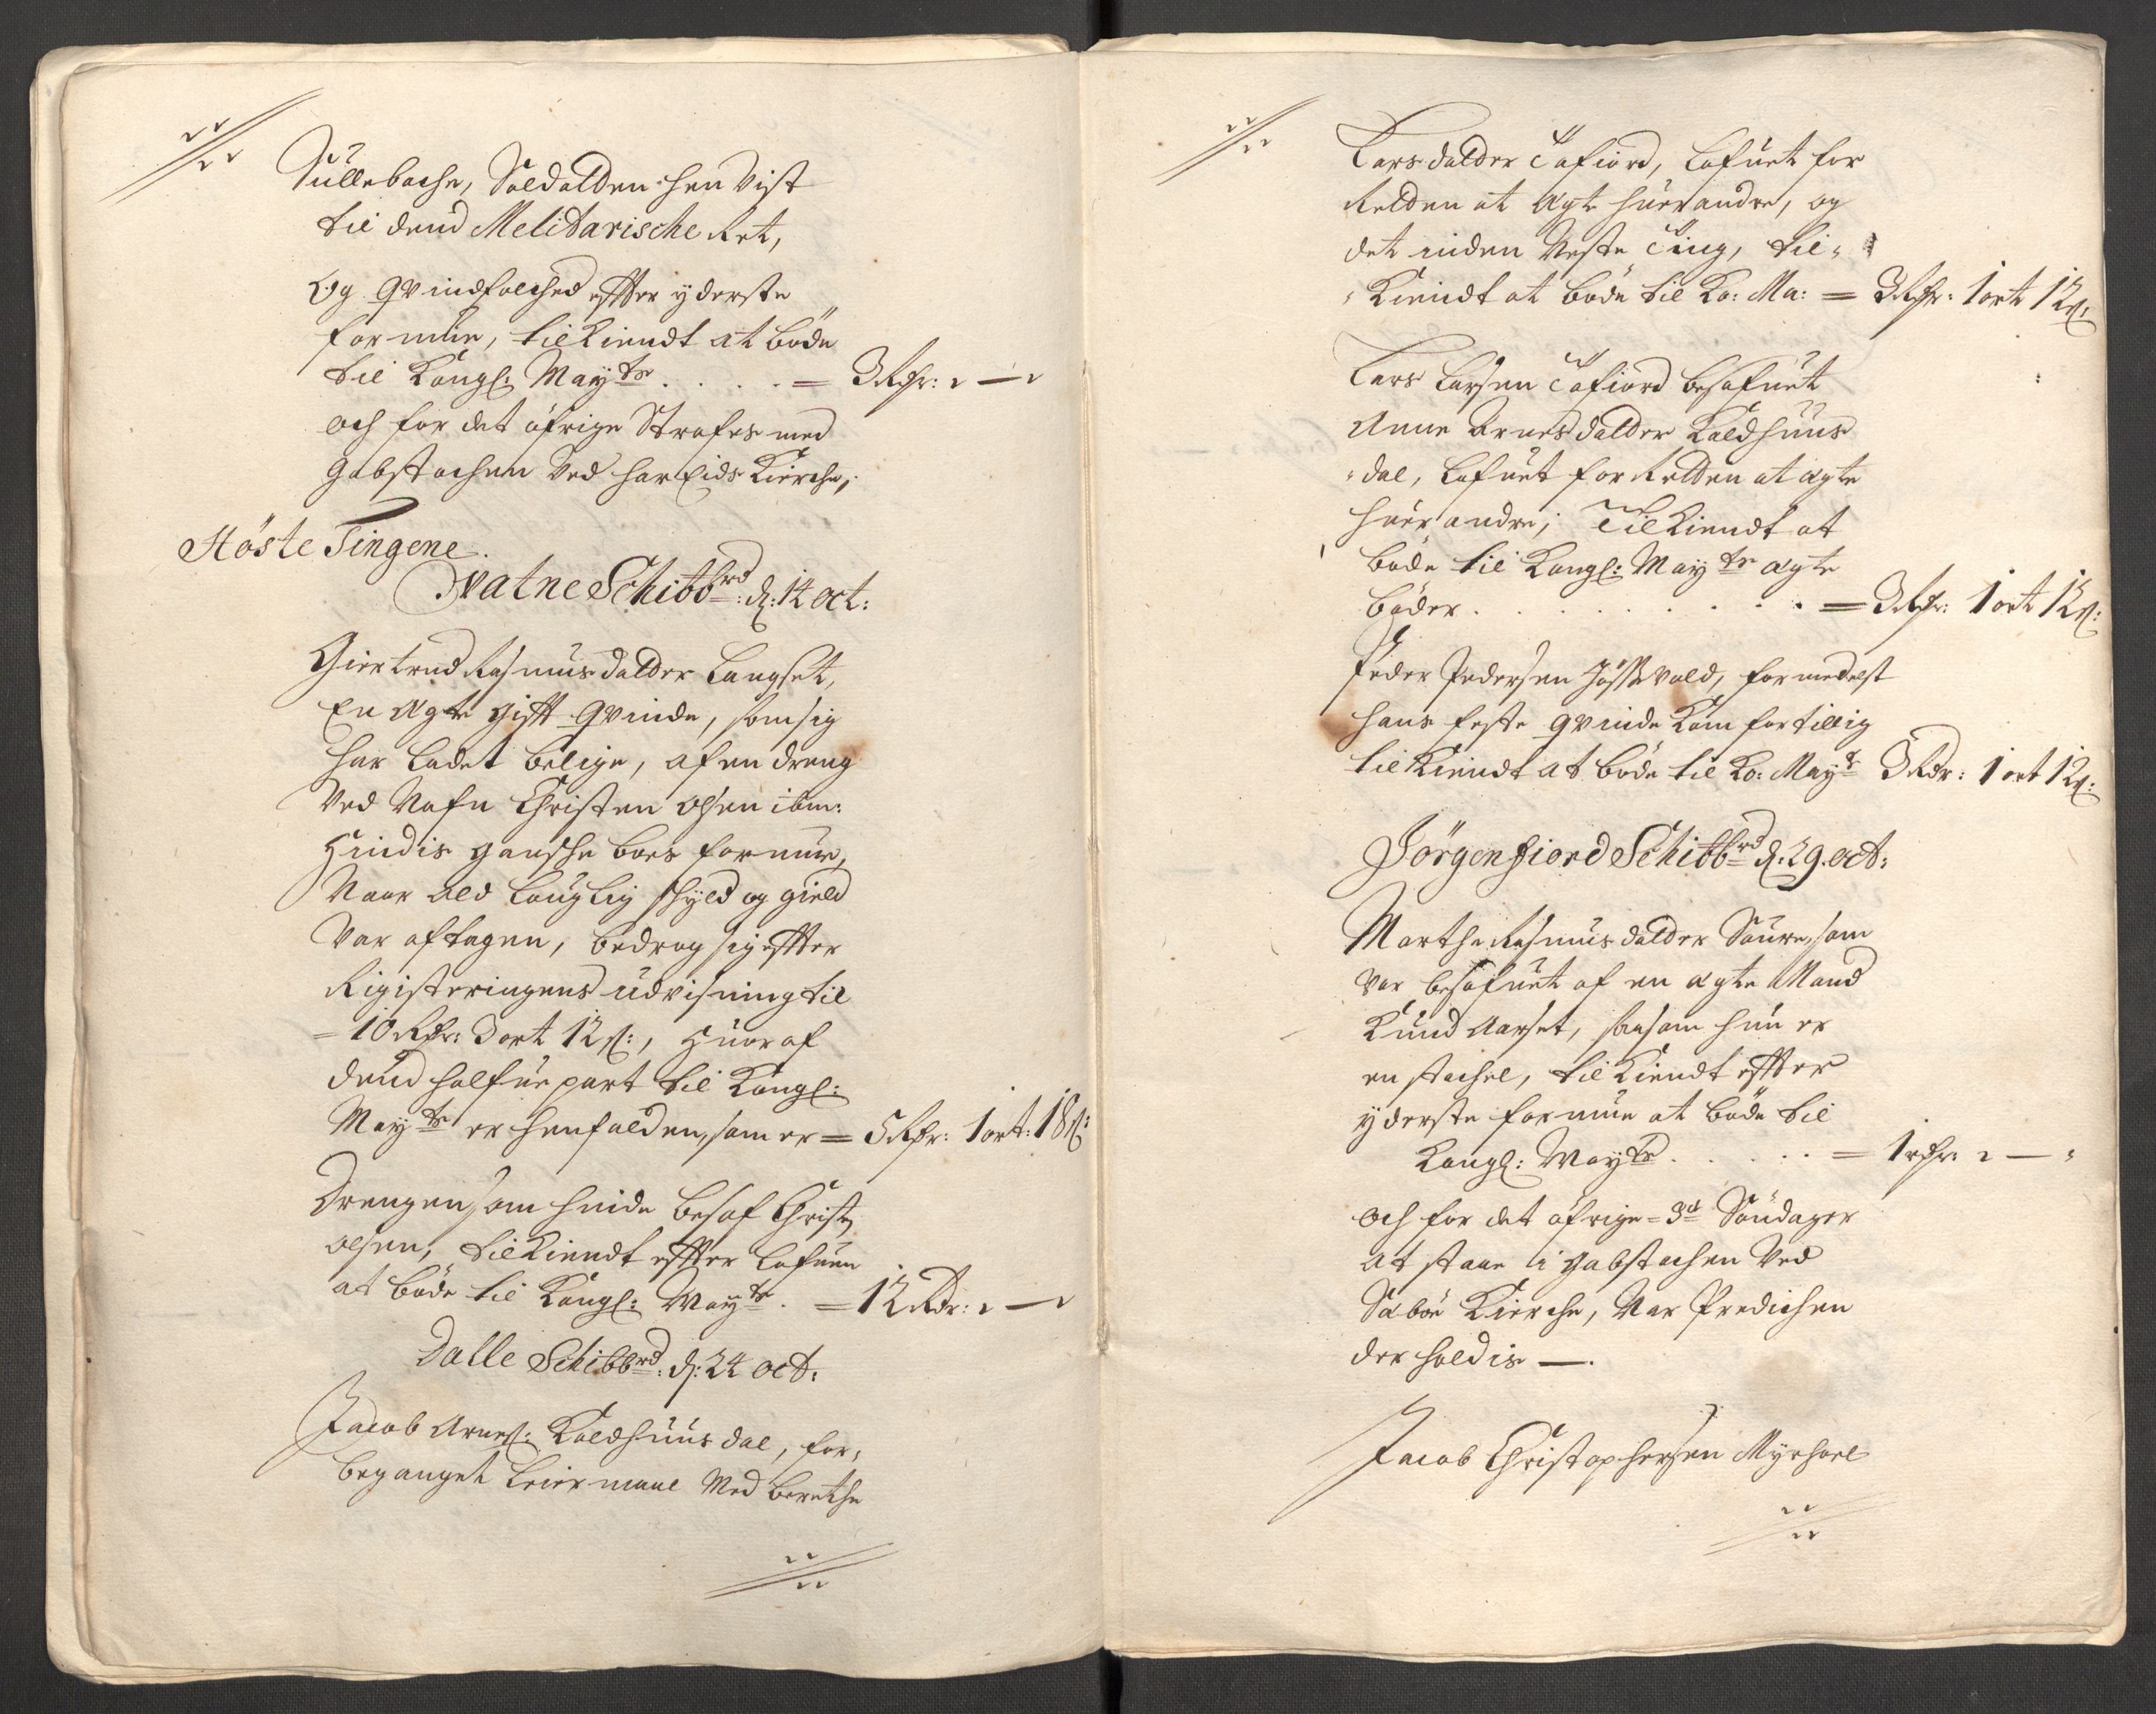 Süllebache, Soldatten hen Vist
til dend Melitarische Ret,
Og qvindfolched effter yderste
formue, tilkiendt at böde
til Kongl: Mayts . . . . = 3 Rdr: " — "
och for det öfrige Strafes med
Gabstochen Ved Hareids Kierche,
Höste Tingene.
Vatne Schibbrd: d: 14 Oct:
Giertrud Rasmusdatter Langset,
En Ægte gifft qvinde, som sig
har ladet belige, af en dreng
Ved Nafn Christen Olsen ibm:
Hindis gandsche boes formue,
Naar ald lauglig schyld og gield
Var aftagen, bedrog sig effter
Rigisteringens udvisning til
= 10 Rdr: 3 ort 12 s:, Huoraf
dend halfue part til Kongl:
Mayts er henfalden, som er = 5 Rdr: 1 ort: 18 s:
Drengen som hinde besof Christen
Olsen, tilkiendt effter Lofuen
at böde til Kongl: Mayts . = 12 Rdr: " — "
Dalle Schibbrd: d: 24 Oct:
Jacob Arnes: Kaldhuusdal, for-
begangen Leiermaal Med Berethe
Larsdatter Tafiord, Lofuet for
Retten at Ægte huerandre, og
det inden Neste Ting, til-
-Kiendt at böde til Ko: Ma: = 3 Rdr: 1 ort 12 s:
Lars Larsen Tafiord besofuet
Anne Arnesdatter Kaldhuus
-dal, Lofuet for Retten at ægte
huerandre, Tilkiendt at
böde til Kongl: Mayts ægte
böder . . . . . . . . = 3 Rdr: 1 ort 12 s:
Peder Pedersen Jössevold, formedelst
hans feste qvinde Kom for tillig
tilkiendt at böde til Ko: Mayts 3 Rdr: 1 ort 12 s:
Jörgenfiord Schibbrd d: 29. Oct:
Marthe Rasmusdatter Saure, som
var besofuet af en ægte Mand
Knud Aarset, saasom hun er
en stachel, tilkiendt effter
yderste formue at böde til
Kongl: Mayts . . . . . = 1 rdr: " — "
och for det öfrige = 3de Söndager
at staae i gabstochen Ved
Sæböe Kierche, Naar Predichen
der holdis — .
Jacob Christophersen Myrhoel